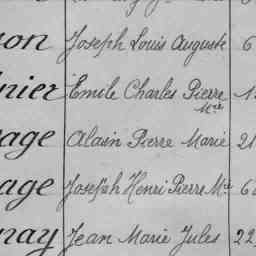 son Joseph Louis Auguste 6
nier Emile Charles Pierre
Mie
age Alain Pierre Marie 21
age Joseph Henri Pierre Mie 6
nay Jean Marie Jules 22